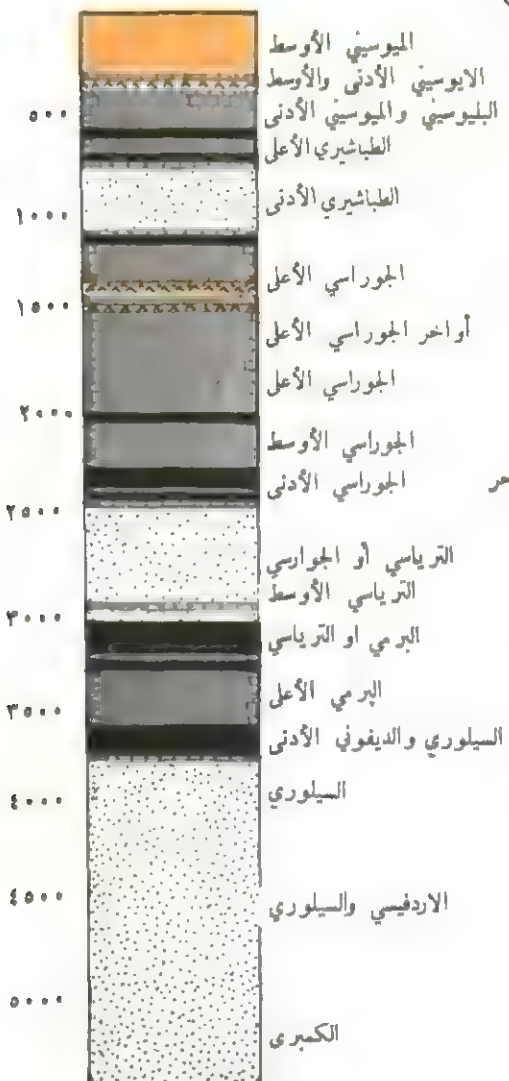 الميوسيني الأوسط
الايوسيني الأدنى والأوسط
البليوسيني والميوسيني الأدنى
٥٠٠
الطباشيري الأعلى
الطباشيري الأدنى
١٠٠٠
الجوراسي الأعلى
١٥٠٠
أواخر الجوراسي الأعلى
الجوراسي الأعلى
٢٠٠٠
الجوراسي الأوسط
الجوراسي الأدنى
حر
٢٥٠٠
الترياسي أو الجوارسي
الترياسي الأوسط
٣٠٠٠
البرمي او الترياسي
البرمي الأعلى
٣٥٠٠
السيلوري والديفوني الأدنى
السيلوري
٤٠٠٠
٤٥٠٠
الاردفيسي والسيلوري
٥٠٠٠
الكمبري